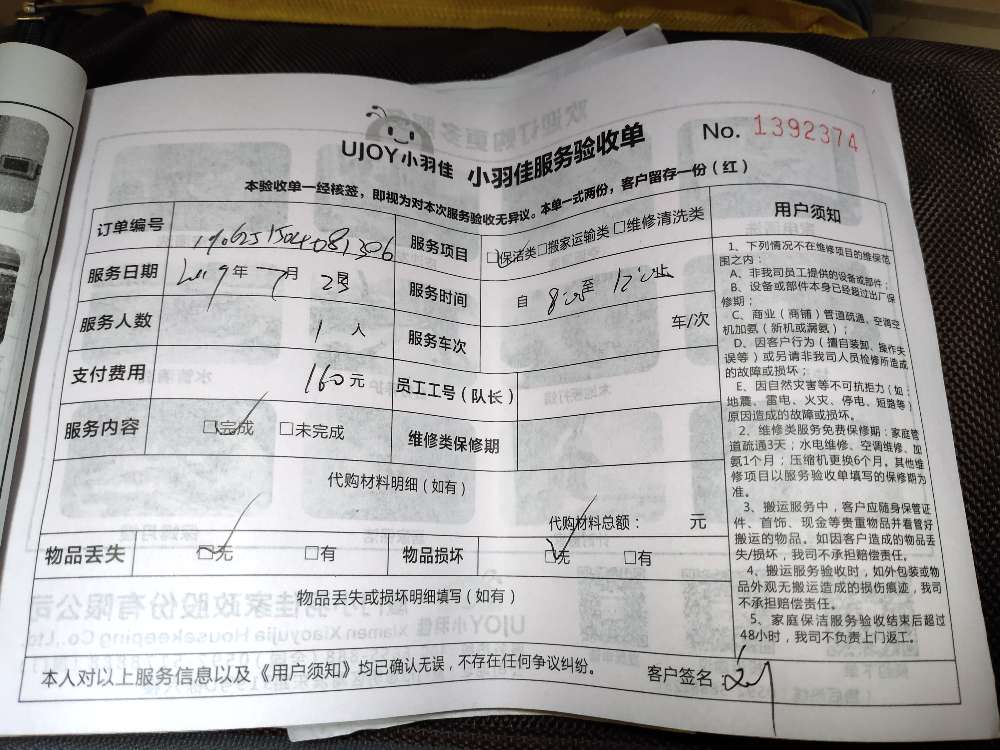 UJOY小羽佳 小羽佳服务验收单
No. 1392374
本验收单一经核签，即视为对本次服务验收无异议。本单一式两份，客户留存一份（红）
订单编号
服务项目 □保洁类□搬家运输类□维修清洗类
服务日期 2019年 7月
服务时间 自 8:00至 12:00止
服务人数 1 人
服务车次 车/次
支付费用 160元
员工工号（队长）
服务内容 □完成 □未完成
维修类保修期
代购材料明细（如有）
代购材料总额： 元
物品丢失 □无 □有 物品损坏 □无 □有
物品丢失或损坏明细填写（如有）
本人对以上服务信息以及《用户须知》均已确认无误，不存在任何争议纠纷。
客户签名：
用户须知
1、下列情况不在维修项目的维保范
围之内：
A、非我司员工提供的设备或部件；
B、设备或部件本身已经超过出厂保
修期；
C、商业（商铺）管道疏通、空调空
机加氨（新机或漏氨）；
D、因客户行为（擅自装卸、操作失
误等）或另请非我司人员检修所造成
的故障或损坏；
E、因自然灾害等不可抗拒力（如：
地震、雷电、火灾、停电、短路等）
原因造成的故障或损坏。
2、维修类服务免费保修期：家庭管
道疏通3天；水电维修、空调维修、加
氨1个月；压缩机更换6个月。其他维
修项目以服务验收单填写的保修期为
准。
3、搬运服务中，客户应随身保管证
件、首饰、现金等贵重物品并看管好
搬运的物品。如因客户造成的物品丢
失/损坏，我司不承担赔偿责任。
4、搬运服务验收时，如外包装或物
品外观无搬运造成的损伤痕迹，我司
不承担赔偿责任。
5、家庭保洁服务验收结束后超过
48小时，我司不负责上门返工。